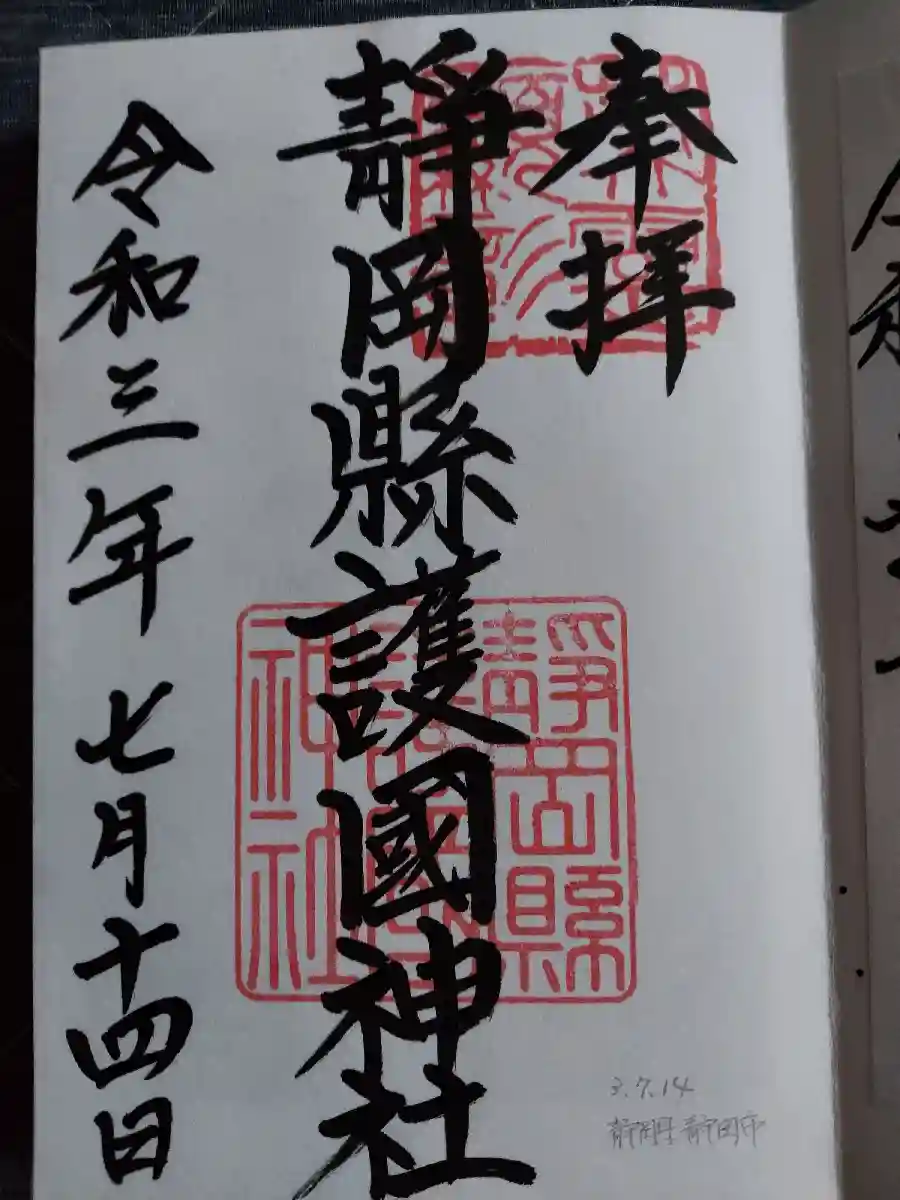 奉拝
靜岡縣護國神社
令和三年七月十四日
靜岡縣護國神社
3.7.14
静岡県静岡市